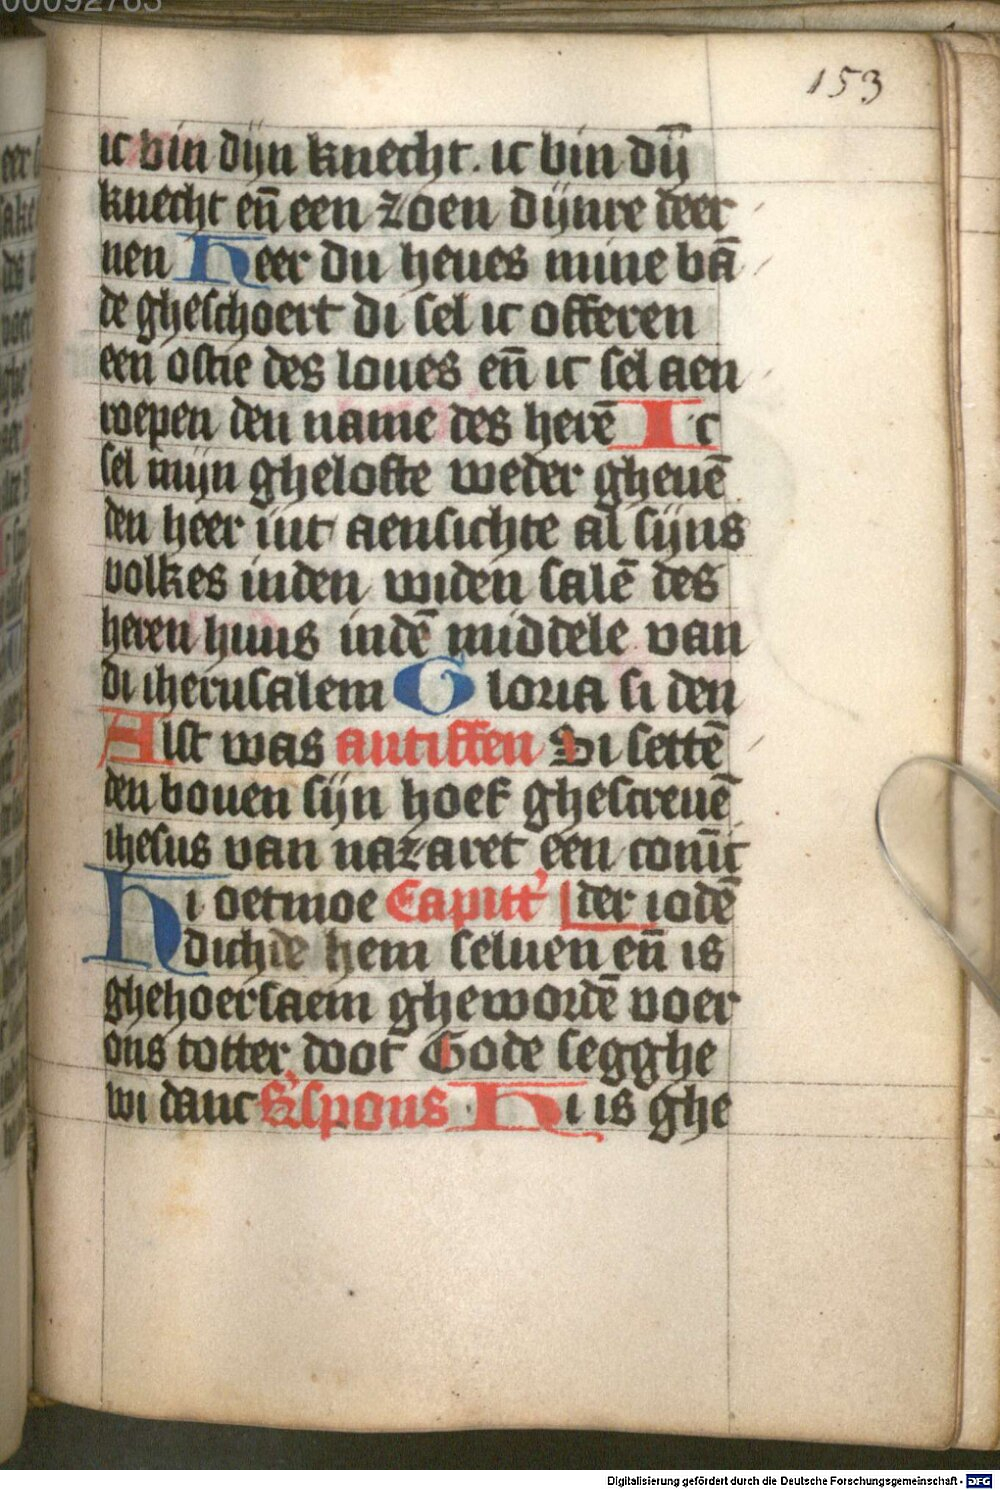 00092763
153
ic bin dijn knecht. ic bin dij̄
knecht en̄ een zoen dijnre deer
nen Heer du heues mine bā
de gheschoert di sel ic offeren
een ostie des loues en̄ ic sel aen
roepen den name des herē Ic
sel mijn ghelofte weder gheuē
den heer int aensichte al sijns
volkes inden widen salē des
heren huus indē middele van
di iherusalem Gloria si den
Alst was antiffen Si settē
den bouen sijn hoeft ghescreuē
ihesus van nazaret een conīc
Hi oetmoe Capitt' der iodē
dichde hem seluen en̄ is
ghehoersaem ghewordē voer
ons totter doot Gode segghe
wi danc R'spons Hi is ghe
Digitalisierung gefördert durch die Deutsche Forschungsgemeinschaft - DFG